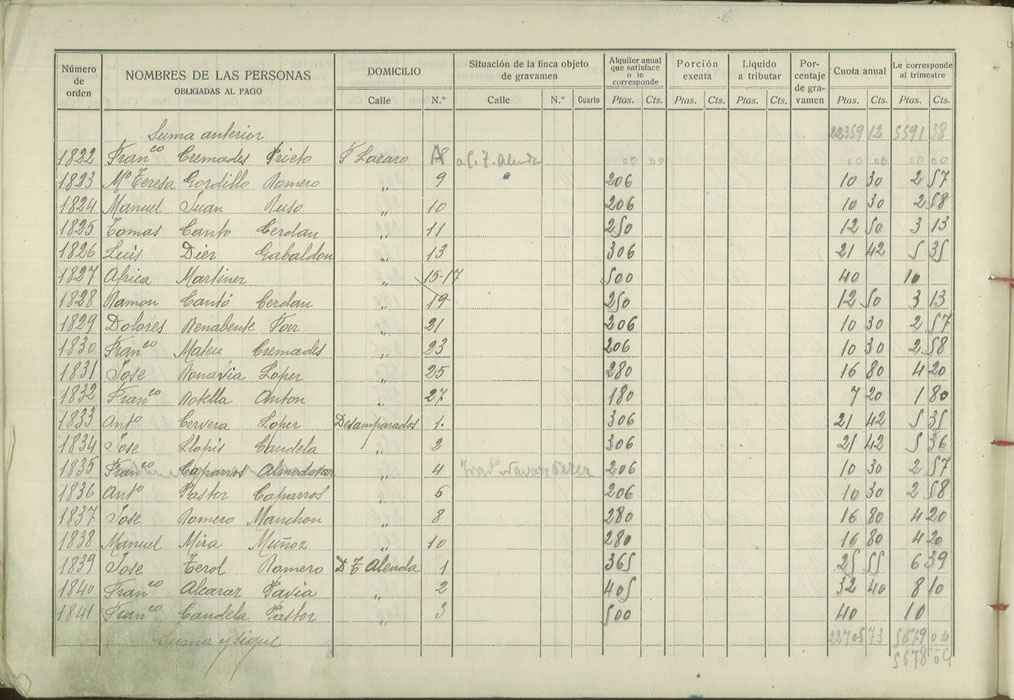 Número de orden NOMBRES DE LAS PERSONAS OBLIGADAS AL PAGO DOMICILIO Situación de la finca objeto de gravamen Alquiler anual que satisface o le corresponde Porción exenta Líquido a tributar Porcentaje de gravamen Cuota anual Le corresponde al trimestre
Calle N.º Calle N.º Cuarto Ptas. Cts. Ptas. Cts. Ptas. Cts. Ptas. Cts. Ptas. Cts.
Suma anterior 22359 12 5591 38
1822 Franco Cremades Prieto S Lazaro a C. F. Alenda 00 00 00 00 00 00
1823 Mª Teresa Gordillo Romero " 9 206 10 30 2 57
1824 Manuel Juan Ruso " 10 206 10 30 2 58
1825 Tomas Canto Cerdan " 11 250 12 50 3 13
1826 Luis Dier Gabaldon " 13 306 21 42 5 35
1827 Africa Martiner " 15-17 500 40 10
1828 Ramon Cantó Cerdan " 19 250 12 50 3 13
1829 Dolores Benabente " 21 206 10 30 2 57
1830 Franco Mateu Cremades " 23 206 10 30 2 58
1831 Jose Bonavia Loper " 25 280 16 80 4 20
1832 Franco Botella Anton " 27 180 7 20 1 80
1833 Anto Cervera Loper Desamparados 1 306 21 42 5 35
1834 Jose Llopis Candela " 2 306 21 42 5 36
1835 Franco Caparros Almodovar " 4 206 10 30 2 57
1836 Anto Pastor Caparros " 6 206 10 30 2 58
1837 Jose Romero Manchon " 8 280 16 80 4 20
1838 Manuel Mira Muñoz " 10 280 16 80 4 20
1839 Jose Terol Romero D F Alenda 1 365 25 55 6 39
1840 Franco Alcarar Pavia " 2 405 32 40 8 10
1841 Franco Candela Pastor " 3 500 40 10
Suma y sigue 22705 73 5679 04
5678 04